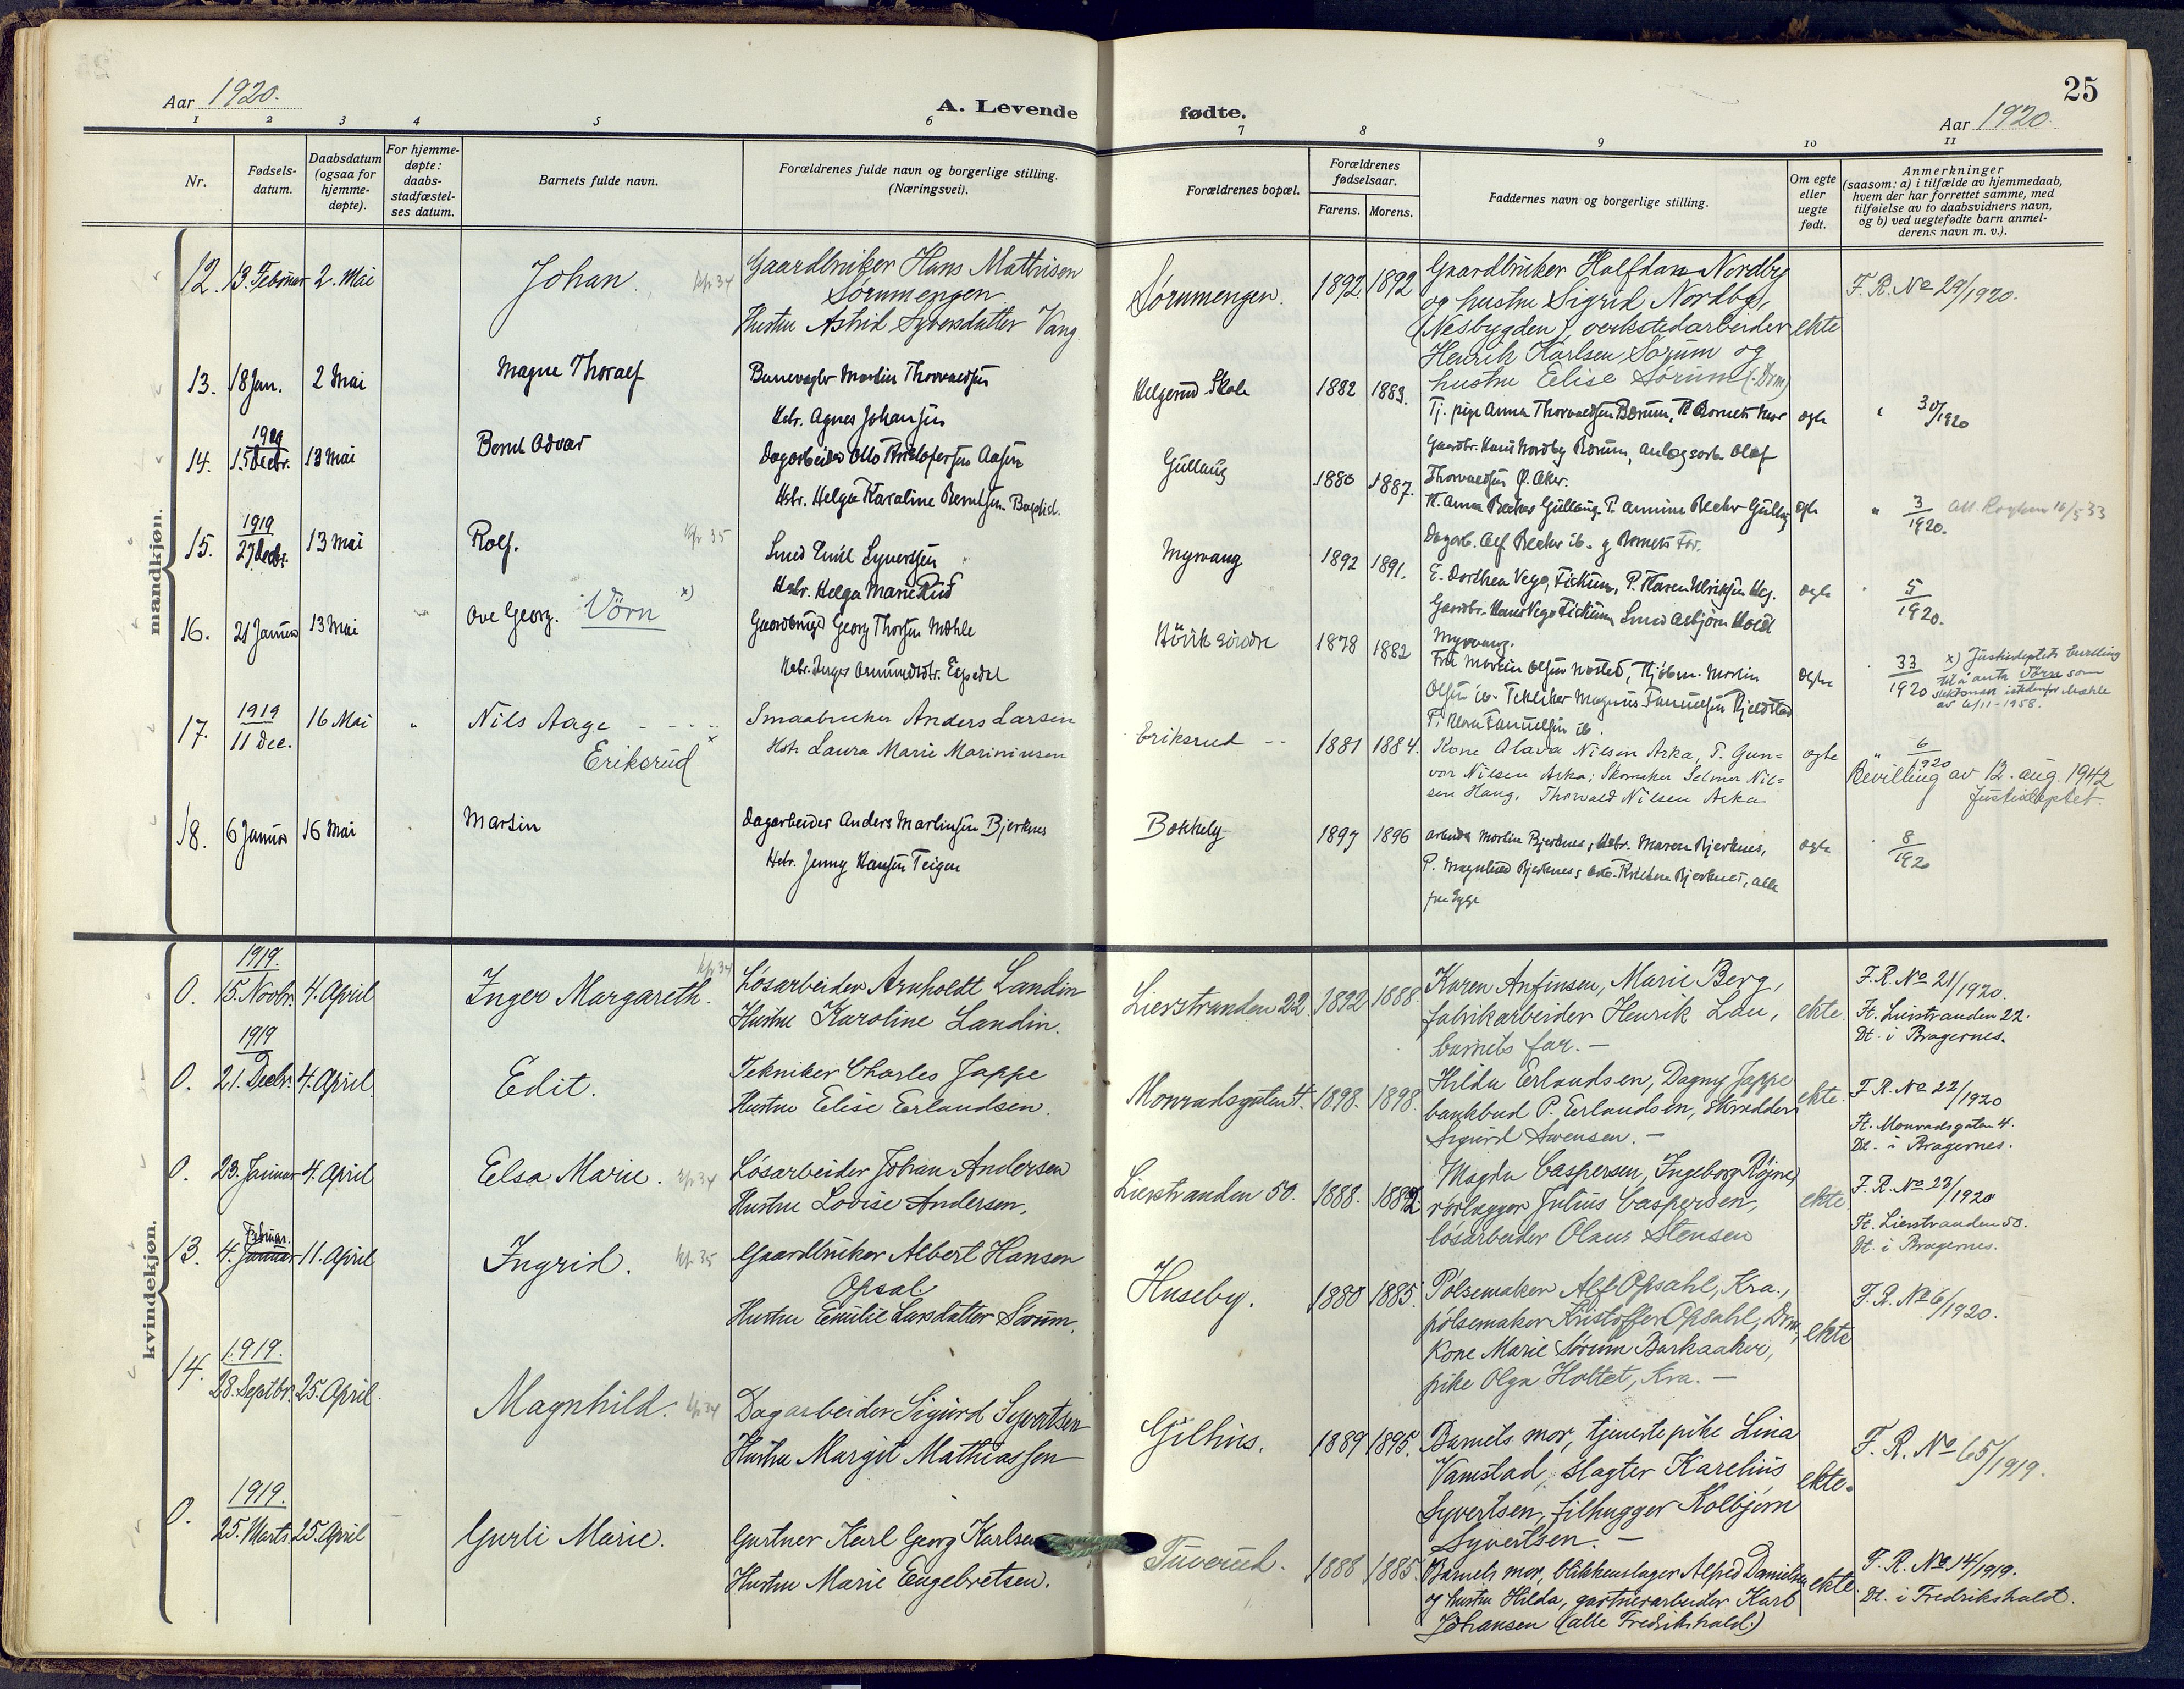 25
Aar 1920.
A. Levende fødte.
Aar 1920.
1 2 3 4 5 6 7 8 9 10 11
Nr.
Fødsels-
datum.
Daabsdatum
(ogsaa for
hjemme-
døpte).
For hjemme-
døpte:
daabs-
stadfæstel-
ses datum.
Barnets fulde navn.
Forældrenes fulde navn og borgerlige stilling.
(Næringsvei).
Forældrenes bopæl.
Forældrenes
fødselsaar.
Farens. Morens.
Faddernes navn og borgerlige stilling.
Om egte
eller
uegte
født.
Anmerkninger
(saasom: a) i tilfælde av hjemmedaab,
hvem der har forrettet samme, med
tilføielse av to daabsvidners navn,
og b) ved uegtefødte barn anmel-
derens navn m. v.).
mandkjøn.
12. 13. Februar 2. Mai
Johan.
Gaardbruker Hans Mathisen
Sørumengen
Hustru Astrid Syversdatter Vang.
Sørumengen. 1892 1892
Gaardbruker Halfdan Nordby
og hustru Sigrid Nordby,
(Nesbygden), verkstedarbeider
Henrik Karlsen Sørum og
hustru Elise Sørum (Drm)
ekte
F. R. No 29/1920.
13. 18 Jan. 2 Mai
Magne Thoralf
Banevogter Martin Thorvaldsen
Hstr. Agnes Johansen
Helgerud Skole 1882 1883.
Tj. pige Anna Thorvaldsen Bærum, Barnets Mor
Gaardbr. Hans Nordby Bærum, Anlægsarb. Olaf
Thorvaldsen Ø. Aker.
egte
" 30/1920
14. 1919 15 Decbr. 13 Mai
Bernt Odvar
Dagarbeider Otto Kristofersen Aasen
Hstr. Helga Karoline Berntsen. Baptist.
Gullaug 1880 1887.
K. Anna Becher Gullaug. P. Annine Becher Gullaug
Dagarb. Alf Becher ib. og Barnets Far.
egte
" 3/1920. Att. Røyken 16/5 33
15. 1919 27 Decbr. 13 Mai
Rolf.
kfr 35
Smed Emil Syversen
Hstr. Helga Marie Rud
Myrvang 1892 1891.
E. Dorthea Vego, Fiskum, P. Karen Ulriksen Heg.
Gaardbr. Hans Vego Fiskum Smed Asbjørn Hoedt
Myrvang.
egte
5/1920.
16. 21 Januar 13 Mai
Ove Georg. Vörn x)
Gaardbruger Georg Thorsen Mæhle
Hstr. Inger Aanundsdtr. Espedal
Høvik søndre 1878 1882
egte
33/1920
x) Justisdeptets bevilling
til å anta Vörn som
slektsnavn istedenfor Mæhle
av 6/11-1958.
17. 1919 11 Dec. 16 Mai "
Nils Aage
Eriksrud x
Smaabruker Anders Larsen
Hstr Laura Marie Marininsen
Eriksrud 1881 1884.
Kone Olava Nilsen Aska, P. Gun-
vor Nilsen Aska; Skomaker Selmer Nil-
sen Haug, Thorvald Nilsen Aska
egte
" 6/1920
Bevilling av 12. aug. 1942
Justisdeptet.
18. 6 Januar 16 Mai
Martin
Dagarbeider Anders Martinsen Bjerknes
Hstr. Jenny Hansen Teigen
Bokkely 1897 1896
Arbeider Martin Bjerknes, Hstr. Maren Bjerknes,
P. Magnhild Bjerknes, Arb. Kristian Bjerknes, alle
fra Sylge
egte
8/1920
kvindekjøn.
0. 1919. 15. Novbr. 4. April
Inger Margareth.
kfr 34
Løsarbeider Arnholdt Landin
Hustru Karoline Landin.
Lierstranden 22 1892 1888
Karen Anfinsen, Marie Berg,
fabrikarbeider Henrik Lau,
barnets far. —
ekte.
F. R. No 21/1920.
Ft. Lierstranden 22.
Dt. i Bragernes.
0. 1919 21. Decbr. 4. April
Edit.
Tekniker Charles Jappe
Hustru Elise Erlandsen.
Monradsgaten 4. 1898. 1898.
Hilda Erlandsen, Dagny Jappe
bankbud P. Erlandsen, skrædder
Sigurd Swensen. —
ekte.
F. R. No 22/1920
Ft. Monradsgaten 4.
Dt. i Bragernes.
0. 23. Januar 4. April
Elsa Marie.
kfr 34
Løsarbeider Johan Andersen
Hustru Lovise Andersen.
Lierstranden 50. 1888. 1882.
Magda Caspersen, Ingeborg Röjne,
rørlægger Julius Caspersen,
løsarbeider Olaus Stensen
ekte
F. R. No 23/1920
Ft. Lierstranden 50.
Dt. i Bragernes.
13. Februar. 4. Januar 11. April
Ingrid.
kfr 35
Gaardbruker Albert Hansen
Opsal
Hustru Emilie Larsdatter Sørum.
Huseby. 1880 1885.
Pølsemaker Alf Opsahl, Kra.,
pølsemaker Kristoffer Opsahl, Drm,
Kone Marie Sørum Barkaaker,
pike Olga Holtet, Kra. —
ekte
F. R. No 6/1920.
14. 1919. 28. Septbr. 25. April
Magnhild.
kfr 34
Dagarbeider Sigurd Syvertsen
Hustru Margit Mathiassen
Gilhus. 1889 1895.
Barnets mor, tjenestepike Lina
Vamstad, slagter Karelius
Syvertsen, filhugger Kolbjørn
Syvertsen. —
ekte.
F. R. No 65/1919.
0. 1919. 25. Marts 25. April
Gurli Marie.
Gartner Karl Georg Karlsen
Hustru Marie Engebretsen.
Tuverud. 1888 1885.
Barnets mor, blikkenslager Alfred Danielsen
og hustru Hilda, gartnerarbeider Karl
Johansen (alle Fredrikshald.)
ekte.
F. R. No 14/1919.
Dt. i Fredrikshald.